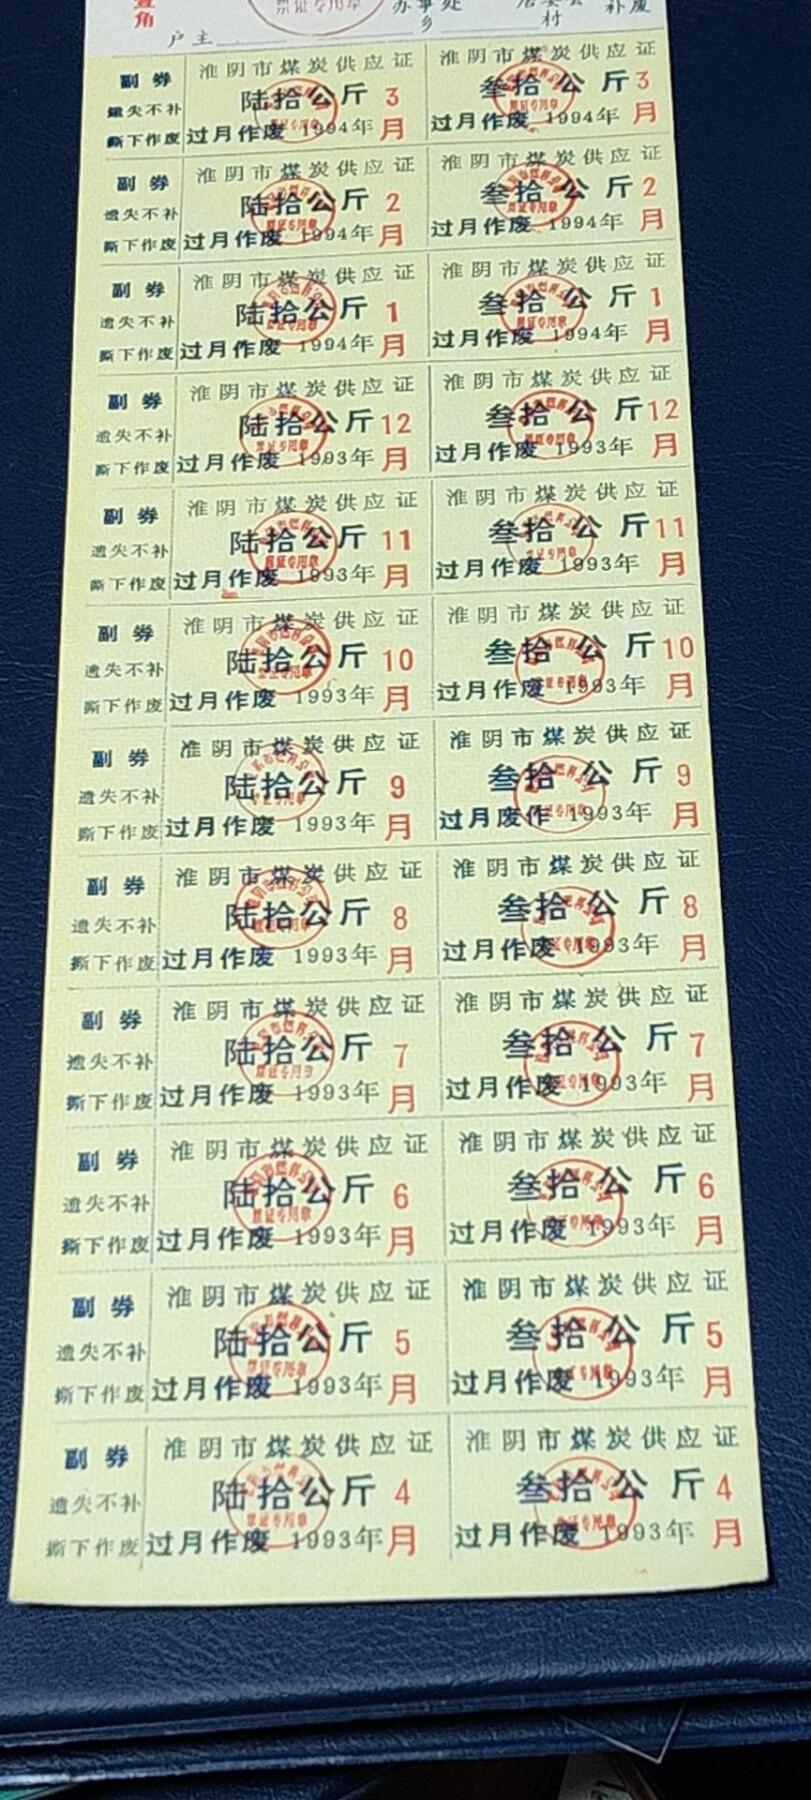 壹角
票证专用章
办事处
居委会
补废
户主
乡
村
副券 淮阴市煤炭供应证 淮阴市煤炭供应证
遗失不补 陆拾公斤 3 叁拾公斤 3
撕下作废 过月作废 1994年 月 过月作废 1994年 月
副券 淮阴市煤炭供应证 淮阴市煤炭供应证
遗失不补 陆拾公斤 2 叁拾公斤 2
撕下作废 过月作废 1994年 月 过月作废 1994年 月
副券 淮阴市煤炭供应证 淮阴市煤炭供应证
遗失不补 陆拾公斤 1 叁拾公斤 1
撕下作废 过月作废 1994年 月 过月作废 1994年 月
副券 淮阴市煤炭供应证 淮阴市煤炭供应证
遗失不补 陆拾公斤 12 叁拾公斤 12
撕下作废 过月作废 1993年 月 过月作废 1993年 月
副券 淮阴市煤炭供应证 淮阴市煤炭供应证
遗失不补 陆拾公斤 11 叁拾公斤 11
撕下作废 过月作废 1993年 月 过月作废 1993年 月
副券 淮阴市煤炭供应证 淮阴市煤炭供应证
遗失不补 陆拾公斤 10 叁拾公斤 10
撕下作废 过月作废 1993年 月 过月作废 1993年 月
副券 准阴市煤炭供应证 淮阴市煤炭供应证
遗失不补 陆拾公斤 9 叁拾公斤 9
撕下作废 过月作废 1993年 月 过月废作 1993年 月
副券 淮阴市煤炭供应证 淮阴市煤炭供应证
遗失不补 陆拾公斤 8 叁拾公斤 8
撕下作废 过月作废 1993年 月 过月作废 1993年 月
副券 淮阴市煤炭供应证 淮阴市煤炭供应证
遗失不补 陆拾公斤 7 叁拾公斤 7
撕下作废 过月作废 1993年 月 过月作废 1993年 月
副券 淮阴市煤炭供应证 淮阴市煤炭供应证
遗失不补 陆拾公斤 6 叁拾公斤 6
撕下作废 过月作废 1993年 月 过月作废 1993年 月
副券 淮阴市煤炭供应证 淮阴市煤炭供应证
遗失不补 陆拾公斤 5 叁拾公斤 5
撕下作废 过月作废 1993年 月 过月作废 1993年 月
副券 淮阴市煤炭供应证 淮阴市煤炭供应证
遗失不补 陆拾公斤 4 叁拾公斤 4
撕下作废 过月作废 1993年 月 过月作废 1993年 月